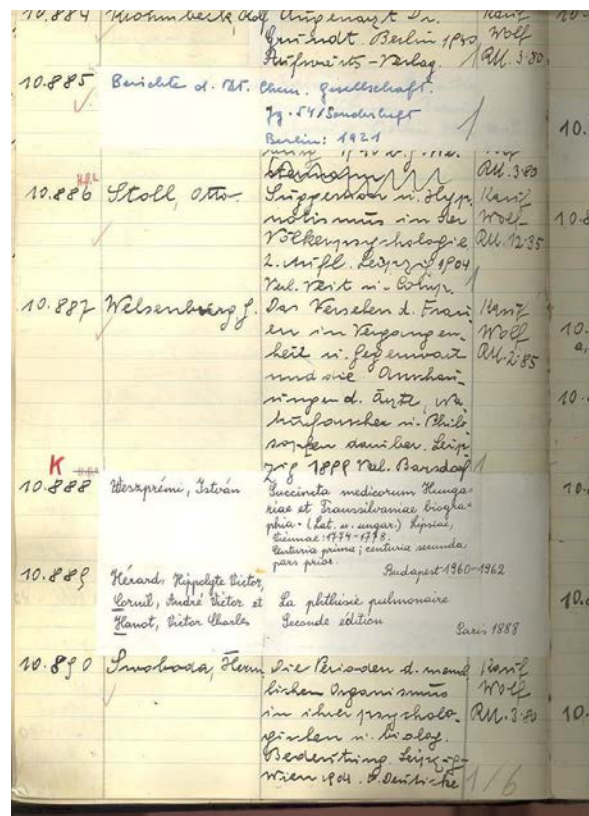 10.884 Krohmbeck, Adolf Augenarzt Dr. Kauf
Grundt. Berlin 1940 Wolf
Aufwärts-Verlag. 1 RM. 3.80
10.885 Berichte d. Dt. Chem. Gesellschaft.
Jg. 54/Sonderheft
Berlin: 1921 1
RM. 3.80
10.886 Stoll, Otto Suggestion u. Hyp- Kauf
notismus in der Wolf
Völkerpsychologie RM. 12.35
2. Aufl. Leipzig 1904
Verl. Veit u. Comp. 1
10.887 Welsenburg G. Das Versehen d. Frau- Kauf
en in Vergangen- Wolf
heit u. Gegenwart RM. 2.85
und die Anschau-
ungen d. Ärzte, Na-
turforscher u. Philo-
sophen darüber. Leip-
zig 1899 Verl. Barsdorf 1
K
10.888 Weszprémi, István Succincta medicorum Hunga-
riae et Transsilvaniae biogra-
phia. (Lat. u. ungar.) Lipsiae,
Viennae: 1774-1778.
Centuria prima; centuria secunda
pars prior.
Budapest 1960-1962
10.889 Hérard, Hippolyte Victor,
Cornil, André Victor et La phthisie pulmonaire
Hanot, Victor Charles Seconde édition
Paris 1888
10.890 Swoboda, Herm. Die Perioden d. mensch- Kauf
lichen Organismus Wolf
in ihrer psycholo- RM. 3.80
gischen u. biolog.
Bedeutung. Leipzig-
Wien 1904. Deuticke 1/6